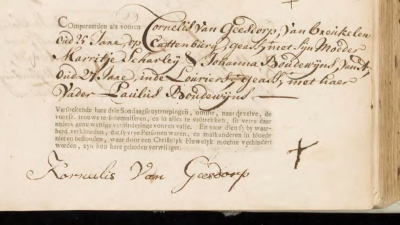 Compareerden als vooren Cornelis Van Geesdorp, Van Breukelen
oud 25 Jaar, op Cattenburg, geast, met sijn Moeder
Marritje Scharley & Johanna Boudewijns, van A,
oud 21 Jaar, inde Lourierst, geast, met haer
Vader Paulus Boudewijns
Versoekende hare drie Sondaagse uytroepingen, omme, naar deselve, de
voorsz. trouwe te solemniseren, en in alles te voltrekken, so verre daar
anders geen wettige verhinderinge voor en valle. En voor dien sy by waar-
heid verklaarden, dat sy vrye Personen waren, en malkanderen in bloede
niet en bestonden, waar door een Christelyk Houwelyk mochte verhindert
worden, zyn hun hare geboden verwilliget.
Kornelis Van Geesdorp